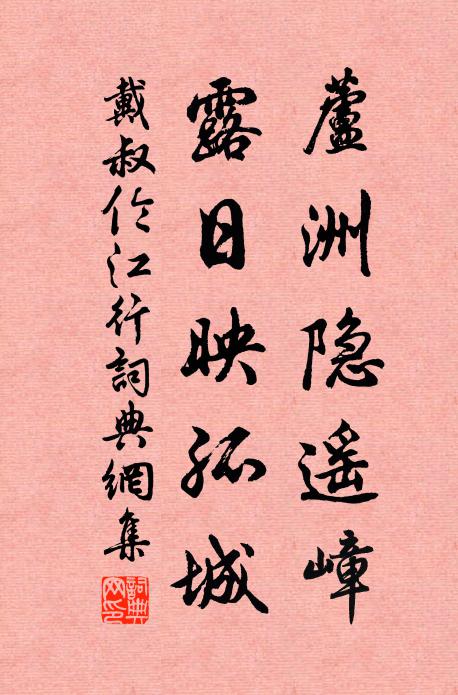 蘆洲隐遥嶂
露日映孤城
戴叔伦江行詞典網集
詞典網印